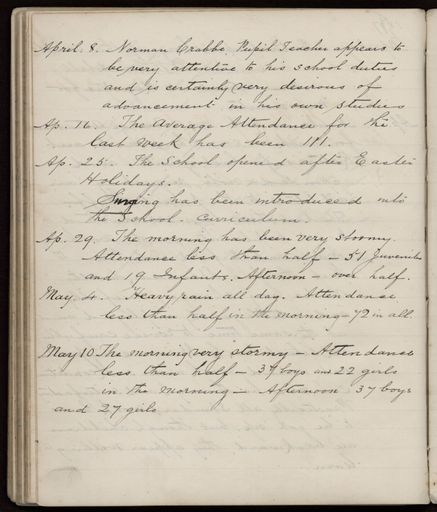 April 8. Norman Crabbe, Pupil Teacher appears to
be very attentive to his school duties
and is certainly very desirous of
advancement in his own studies
Ap. 16. The Average Attendance for the
last week has been 111.
Ap. 25. The School opened after Easter
Holidays.
Singing has been introduced into
the School. Curriculum.
Ap. 29. The morning has been very stormy.
Attendance less than half – 51 Juveniles
and 19 Infants. Afternoon – over half.
May 4. Heavy rain all day. Attendance
less than half in the morning – 72 in all.
May 10 The morning very stormy – Attendance
less than half – 39 boys and 22 girls
in the morning – Afternoon 37 boys
and 27 girls